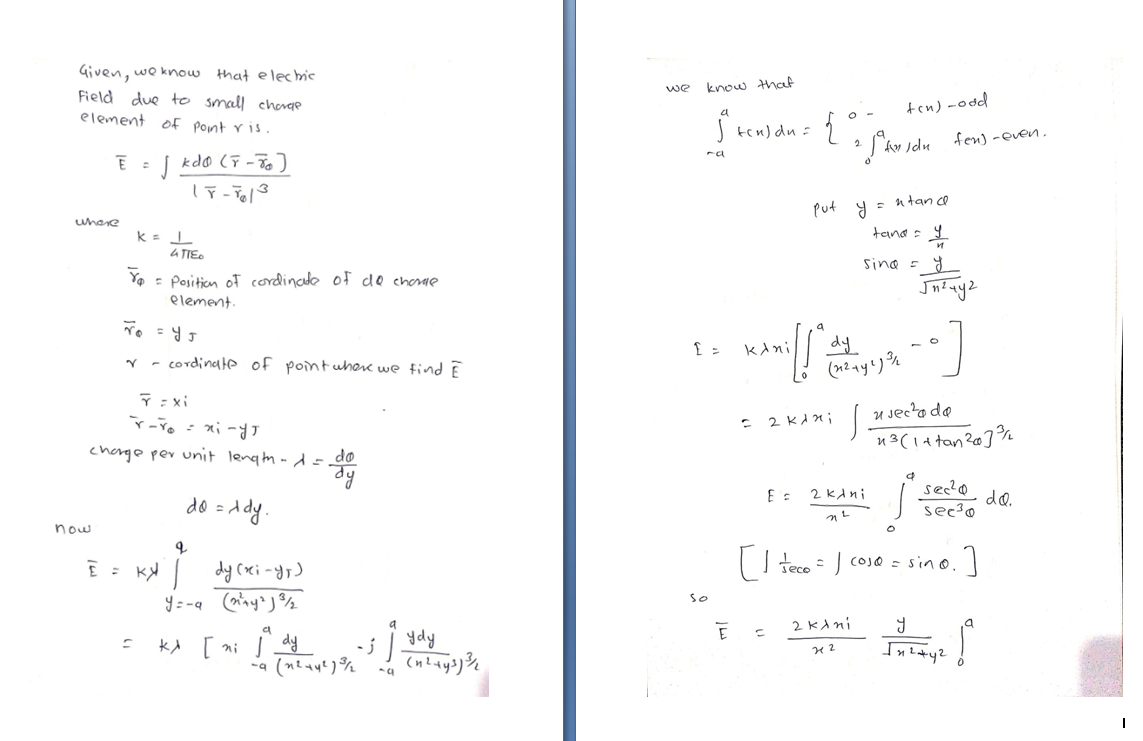 Given, we know that electric
Field due to small charge
element of point r is.
E̅ = ∫ kdQ (r̅ - r̅Q) / |r̅ - r̅Q|³
where
K = 1 / 4πε₀
r̅Q = Position of cordinate of dQ charge
element.
r̅Q = yJ
r - cordinate of point where we find E̅
r̅ = xi
r̅ - r̅Q = xi - yJ
charge per unit length - λ = dQ / dy
dQ = λdy.
now
E̅ = Kλ ∫_{y=-a}^{a} dy (xi - yJ) / (x² + y²)^{3/2}
= Kλ [ xi ∫_{-a}^{a} dy / (x² + y²)^{3/2} - j ∫_{-a}^{a} ydy / (x² + y³)^{3/2}
we know that
∫_{-a}^{a} f(x) dx = { 0 - f(x) - odd
2 ∫_{0}^{a} f(x) dx f(x) - even.
put y = x tanθ
tanθ = y / x
sinθ = y / √x² + y²
E = Kλxi [ ∫_{0}^{a} dy / (x² + y²)^{3/2} - 0 ]
= 2Kλxi ∫ x sec²θ dθ / x³ (1 + tan²θ]^{3/2}
E = 2Kλxi / x² ∫_{0}^{a} sec²θ / sec³θ dθ.
[ ∫ 1 / secθ = ∫ cosθ = sinθ. ]
so
E̅ = 2Kλxi / x² y / √x² + y² ∫_{0}^{a}